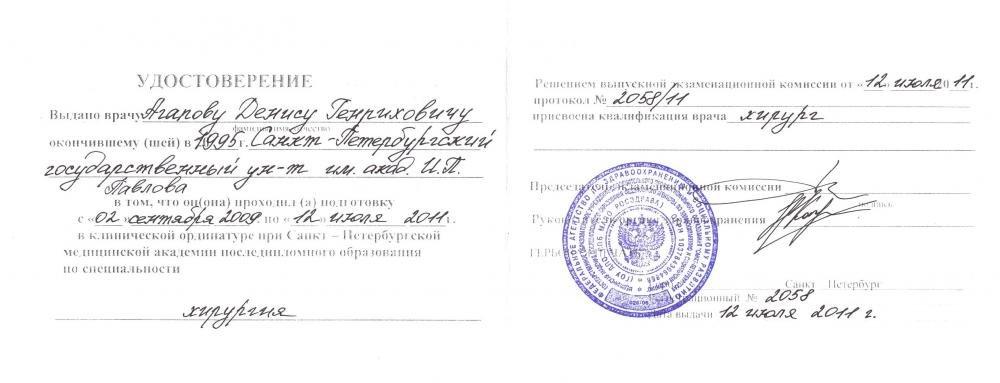 УДОСТОВЕРЕНИЕ
Выдано врачу Агапову Денису Генриховичу
фамилия имя отчество
окончившему (шей) в 1995 г. Санкт-Петербургский
государственный ун-т им. акад. И.П.
Павлова
в том, что он(она) проходил (а) подготовку
с «02» сентября 2009 по «12» июля 2011г.
в клинической ординатуре при Санкт – Петербургской
медицинской академии последипломного образования
по специальности
хирургия
Решением выпускной экзаменационной комиссии от «12» июля 2011г.
протокол № 2058/11
присвоена квалификация врача хирург
Председатель экзаменационной комиссии
подпись
здравоохранения
ФЕДЕРАЛЬНОЕ АГЕНТСТВО ПО ЗДРАВООХРАНЕНИЮ И СОЦИАЛЬНОМУ РАЗВИТИЮ
РОСЗДРАВА
(ГОУ ДПО СПб МАПО
Санкт Петербург
№ 2058
выдачи 12 июля 2011 г.